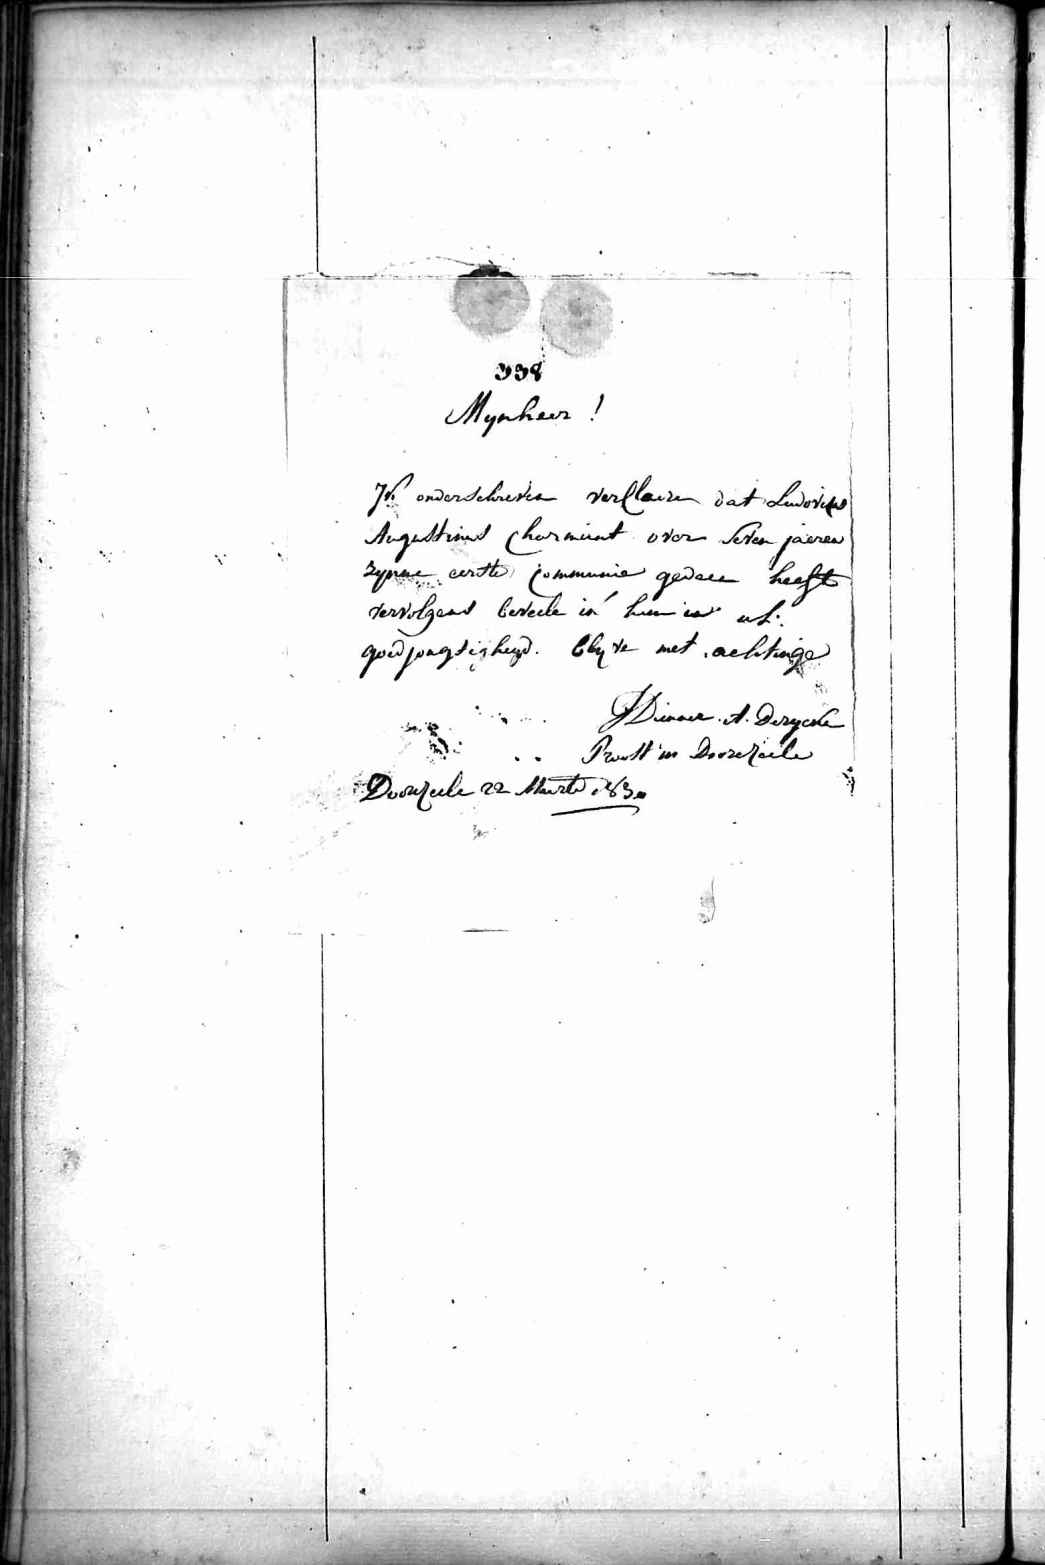 338
Mynheer !
Ik onderschreven verklaere dat Ludovicus
Augustinus Charmint over seven jaeren
zynne eerste Communie gedaen heeft
vervolgens bevele in
goedjonstigheyd. Blyve met achtinge
Dienaer A. Derycke
Proost in Doorezeele
Doorezeele 22 Maerte 183